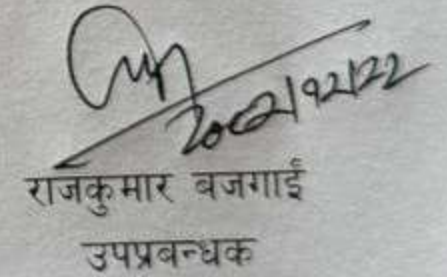 २०८१/१२/२२
राजकुमार बजगाईं
उपप्रबन्धक